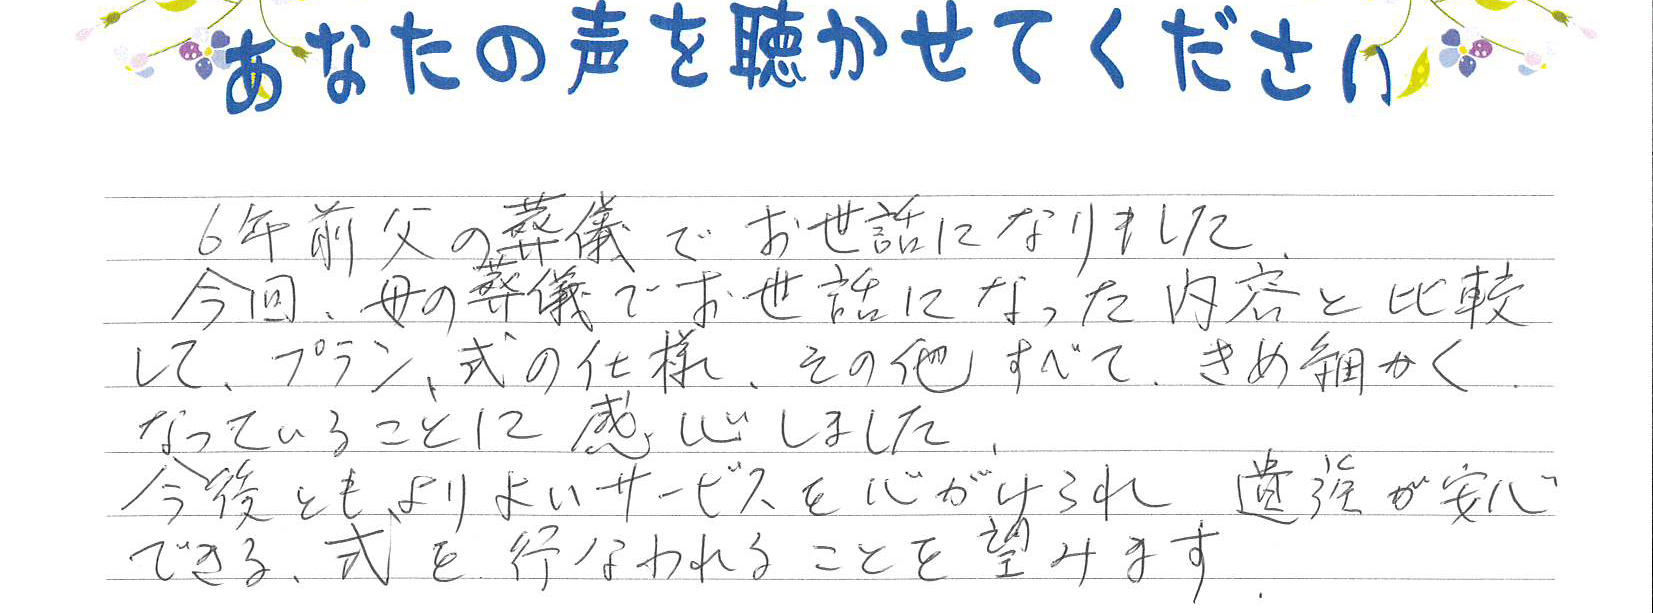 あなたの声を聴かせてください
6年前父の葬儀でお世話になりました.
今回、母の葬儀でお世話になった内容と比較
して、プラン、式の仕様、その他すべて、きめ細かく
なっていることに感心しました.
今後ともよりよいサービスを心がけられ 遺族が安心
できる、式を行なわれることを望みます.